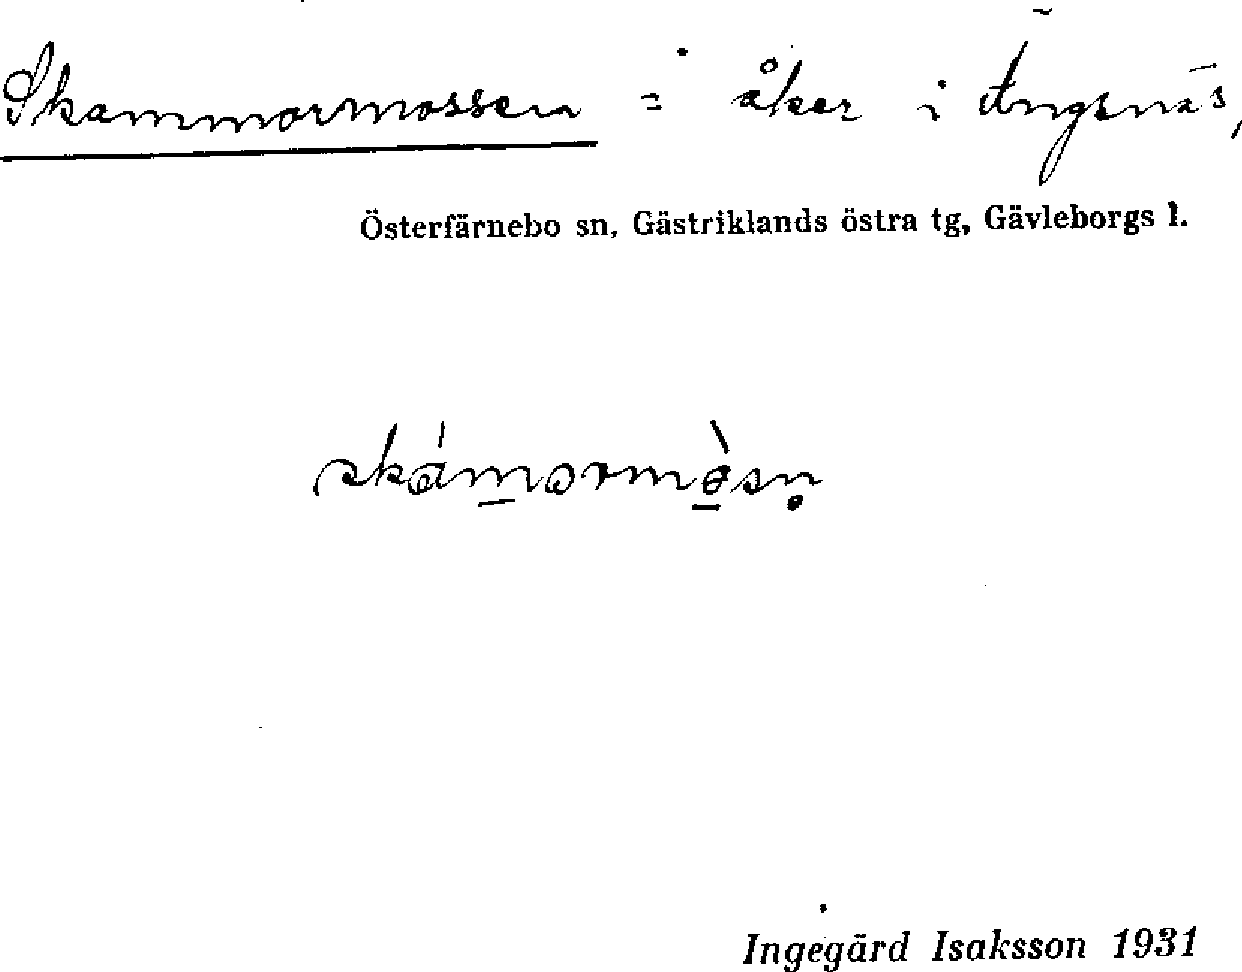 Skammormossen = åker i Ängsnäs,
Österfärnebo sn, Gästriklands östra tg, Gävleborgs l.
skámormòsn̥
Ingegärd Isaksson 1931